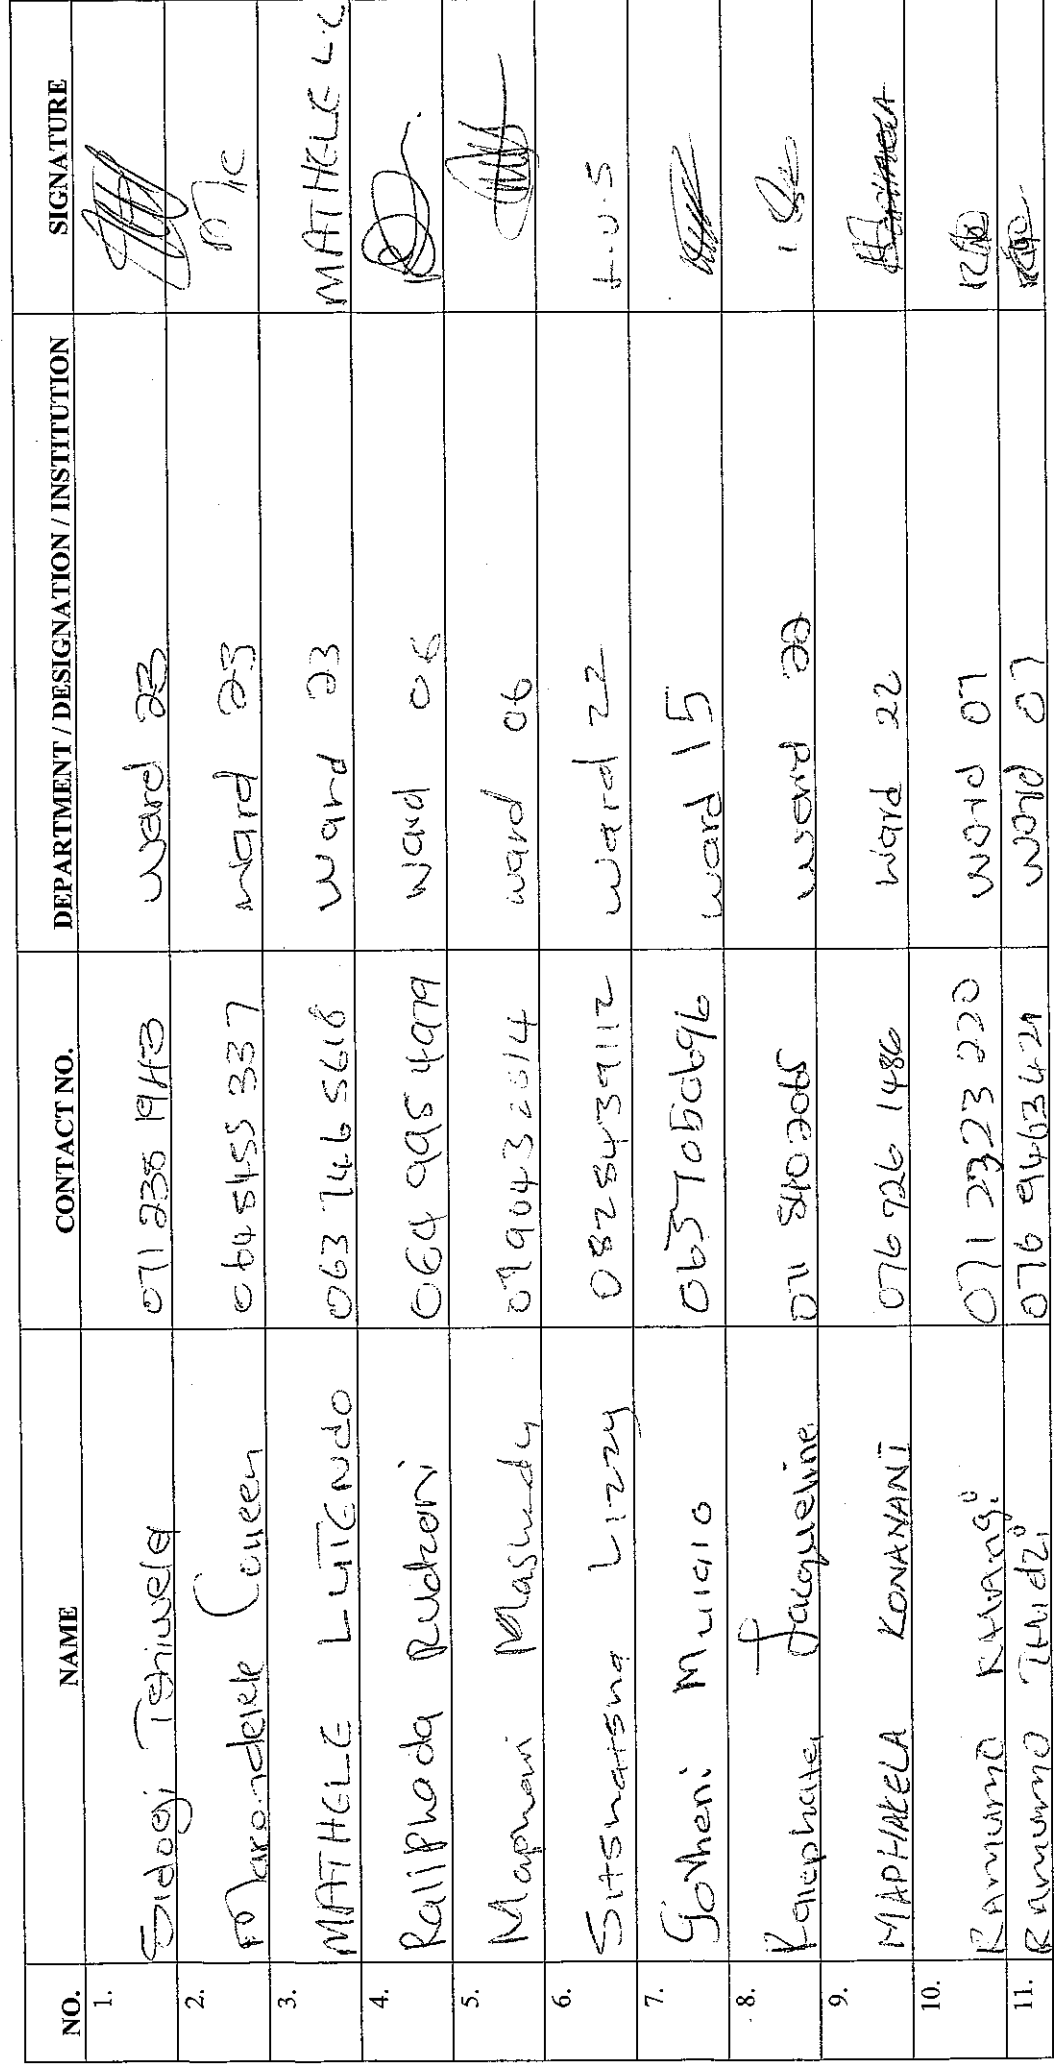 NO. NAME CONTACT NO. DEPARTMENT / DESIGNATION / INSTITUTION SIGNATURE
1. Sidogi Tshiwela 071 238 1943 ward 23
2. Marondele Coueen 064 8455 337 ward 23 M/C
3. MATHELE LUTENDO 063 746 5618 ward 23 MATHELE L.C
4. Raliphada Rudzani 064 995 4979 ward 06
5. Maphari Mashudu ward 06
6. Sitshatsha Lizzy 0828439112 ward 22
7. Govheni Mulalo ward 15
8. Jacqueline 071 840 2065 ward 22
9. MAPHAKELA KONANANI 076 726 1486 ward 22
10. Ramumo Khangi 071 2323 220 ward 07
11. Ramumo Thidzi 076 9463421 ward 07